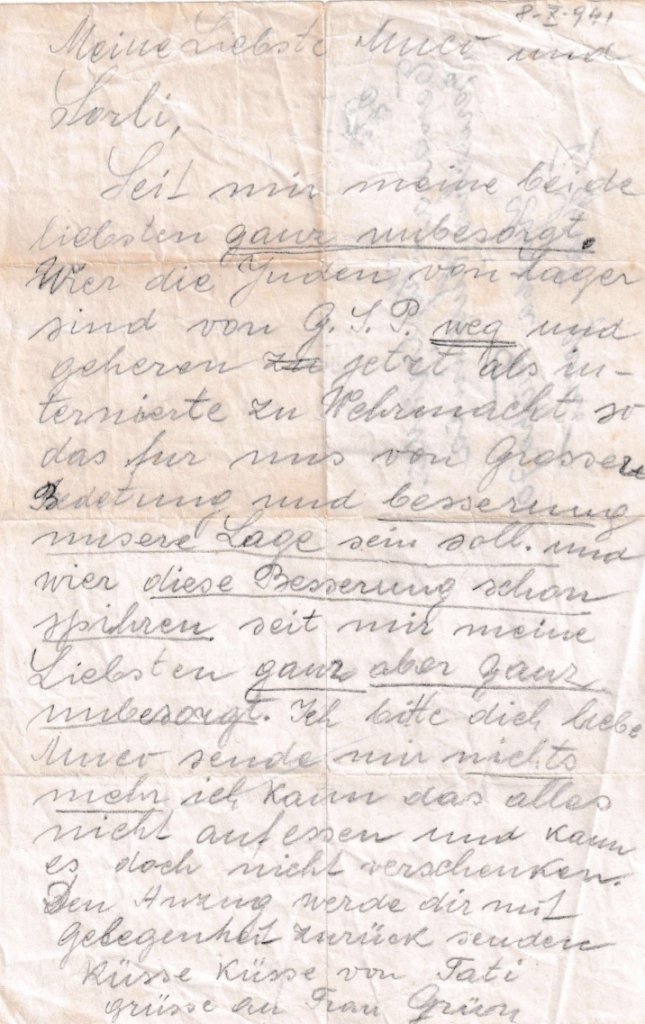 8-X-941
Meine Liebste Muco und
Lorli,
Seit mir meine beide
liebsten ganz unbesorgt.
Wier die Juden von Lager
sind von G.S.P. weg und
geheren zu jetzt als in-
ternierte zu Wehrmacht. so
das fur uns von Grosser
Bedetung und besserung
unsere Lage sein soll. und
wier diese Besserung schon
spihren. seit mir meine
Liebsten ganz aber ganz
unbesorgt. Ich bitte dich liebe
Muco sende mir nichts
mehr ich kann das alles
nicht aufessen und kann
es doch nicht verschenken.
Den Anzug werde dir mit
gebegenheit zurück senden
Küsse Küsse von Tati
grüsse an Frau Grün